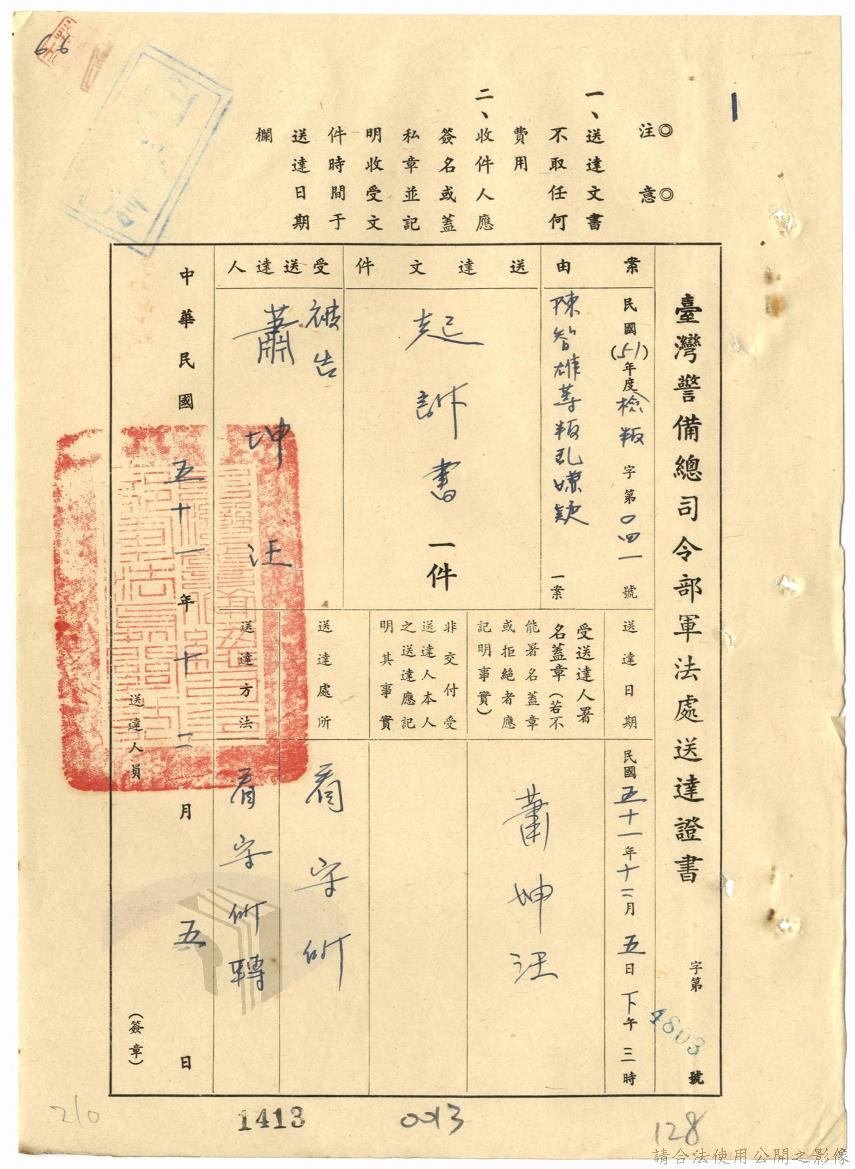 66
◎注意◎
一、送達文書
不取任何
費用
二、收件人應
簽名或蓋
私章並記
明收受文
件時間于
送達日期
欄
臺灣警備總司令部軍法處送達證書
字第4803號
案由
民國(51)年度檢叛字第〇四一號
陳智雄等叛乱嫌疑一案
送達文件
起訴書一件
受送達人
被告
蕭坤汪
送達日期
民國五十一年十二月五日下午三時
受送達人署
名蓋章(若不
能署名蓋章
或拒絕者應
記明事實)
蕭坤汪
非交付受
送達人本人
之送達應記
明其事實
送達處所
看守所
送達方法
看守所轉
中華民國五十一年十二月五日
送達人員(簽章)
210
1413
0013
128
請合法使用公開之影像